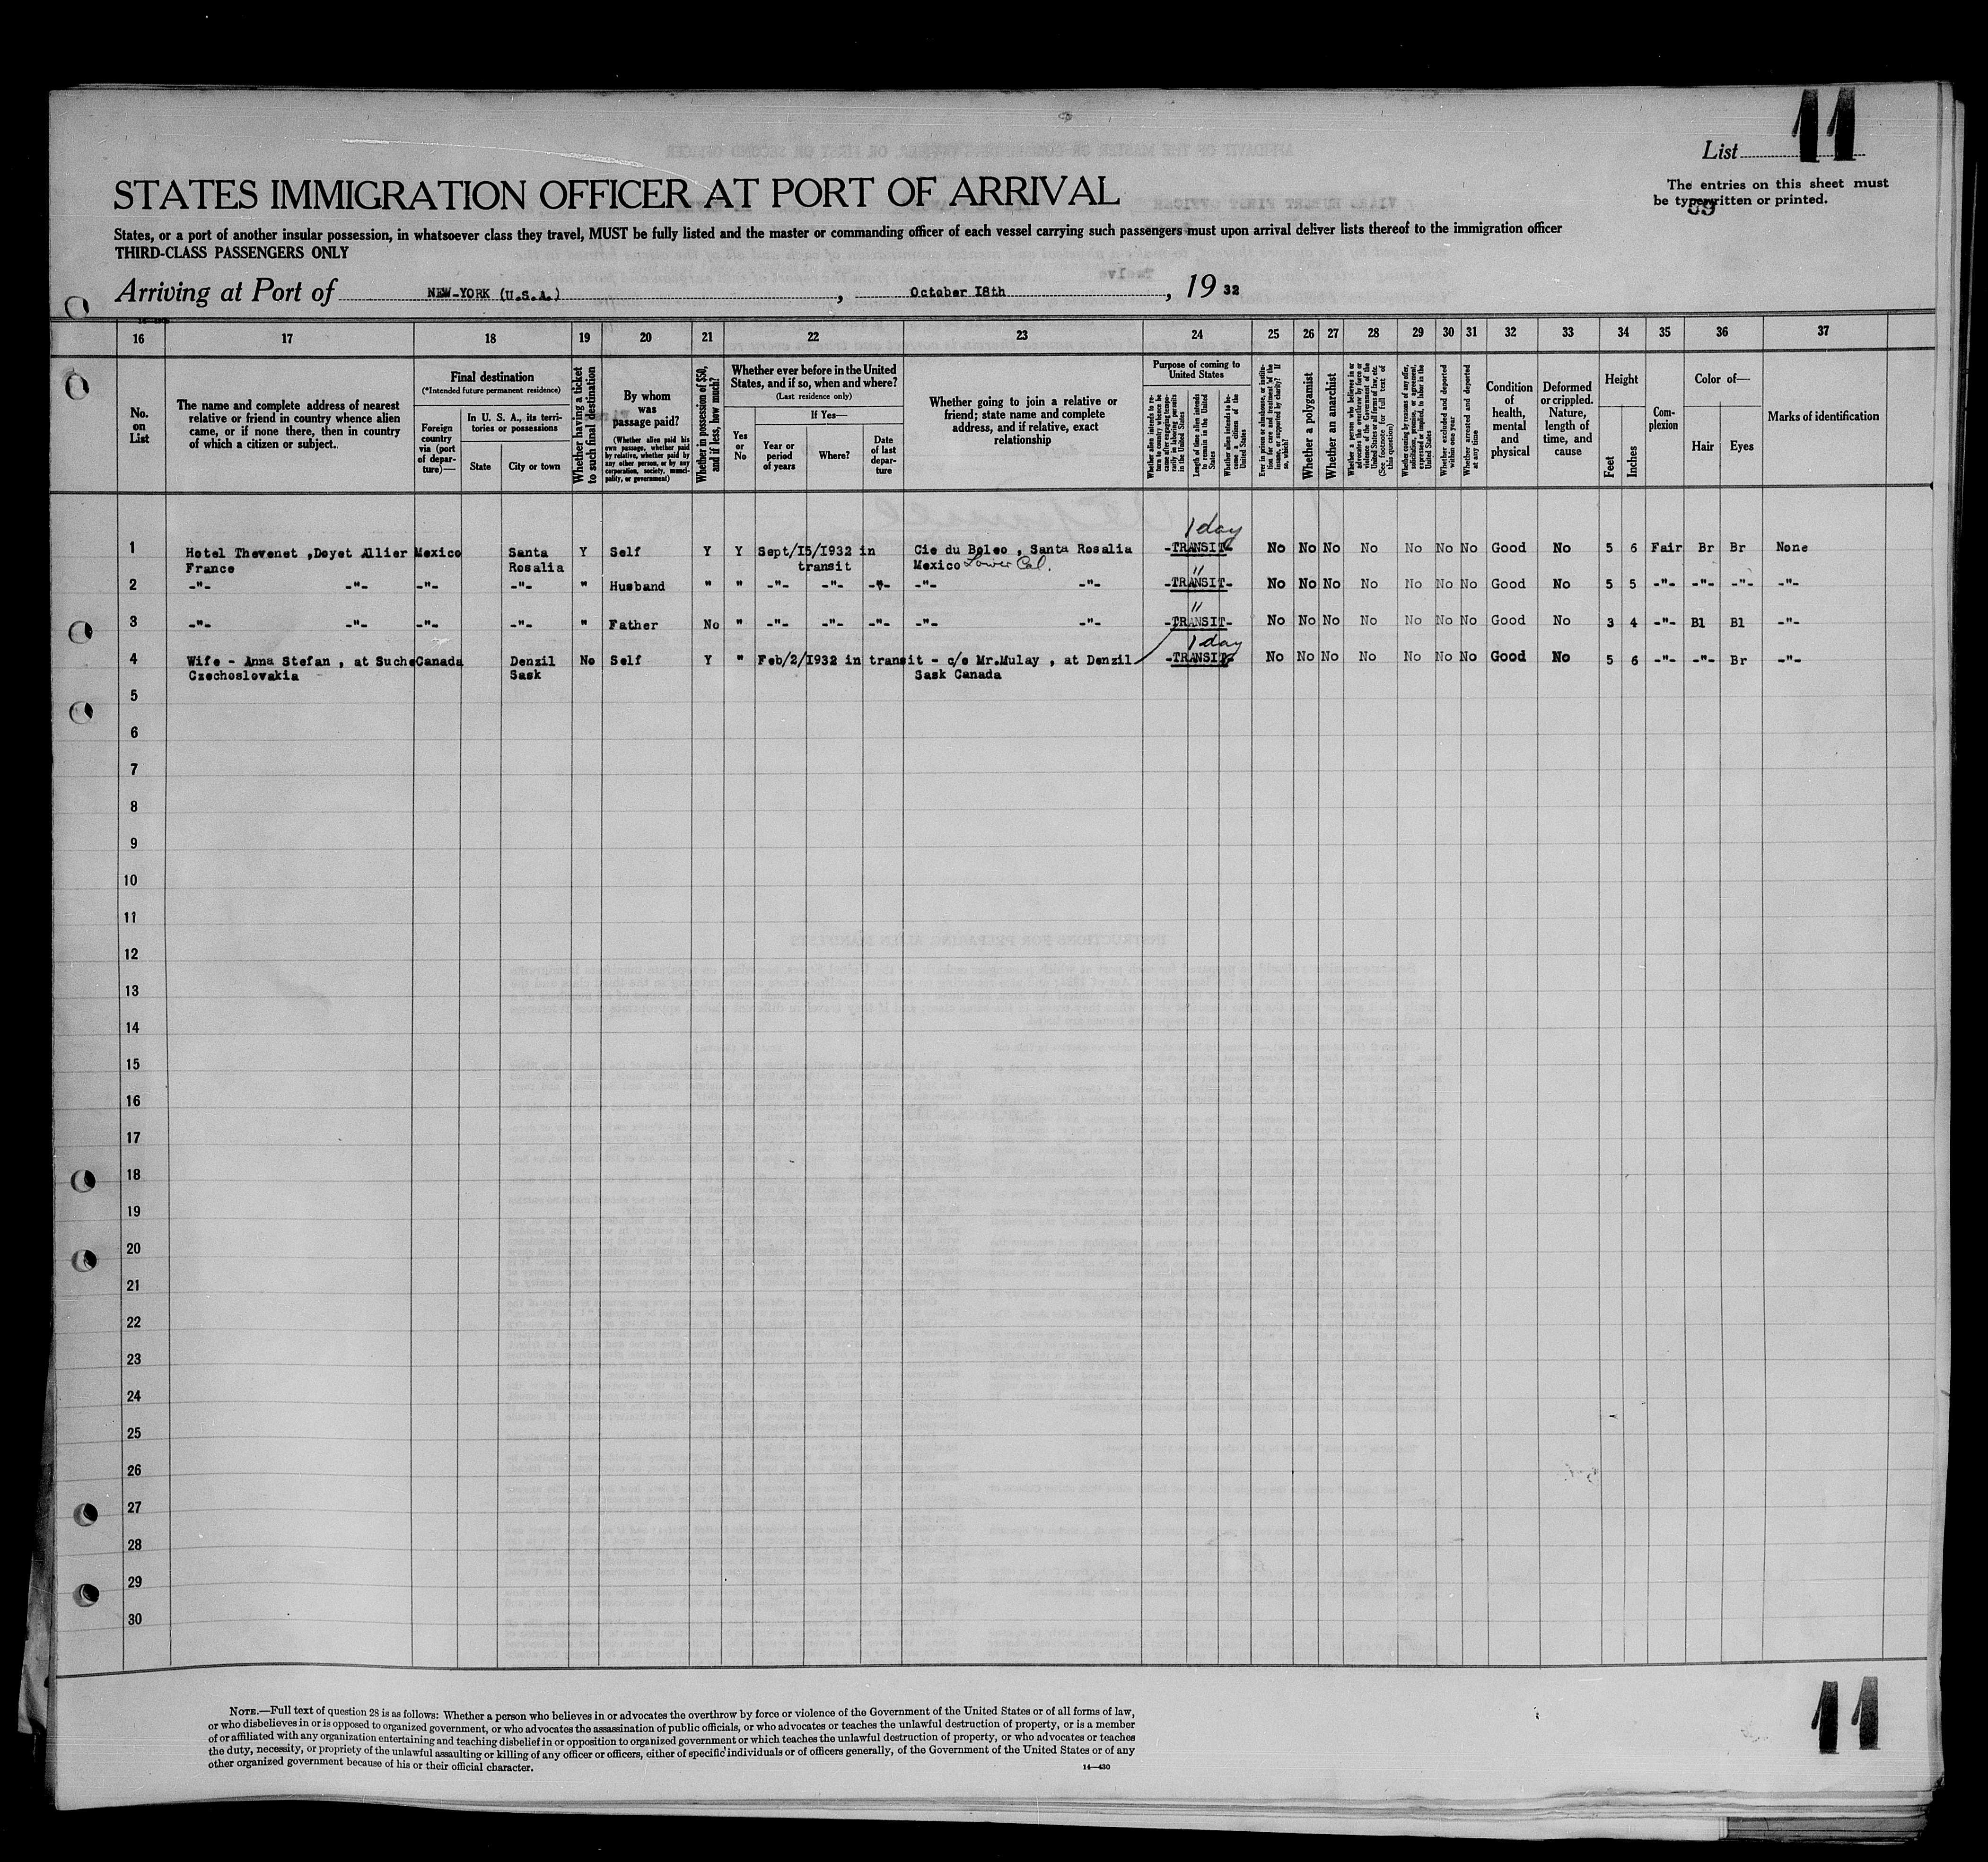 List 11
The entries on this sheet must
be typewritten or printed.
59
STATES IMMIGRATION OFFICER AT PORT OF ARRIVAL
States, or a port of another insular possession, in whatsoever class they travel, MUST be fully listed and the master or commanding officer of each vessel carrying such passengers must upon arrival deliver lists thereof to the immigration officer
THIRD-CLASS PASSENGERS ONLY
Arriving at Port of NEW-YORK (U.S.A.), October I8th, 19 32
16 17 18 19 20 21 22 23 24 25 26 27 28 29 30 31 32 33 34 35 36 37
No.
on
List
The name and complete address of nearest
relative or friend in country whence alien
came, or if none there, then in country
of which a citizen or subject.
Final destination
(*Intended future permanent residence)
Foreign
country
via (port
of depar-
ture)—
In U. S. A., its terri-
tories or possessions
State
City or town
Whether having a ticket
to such final destination
By whom
was
passage paid?
(Whether alien paid his
own passage, whether paid
by relative, whether paid by
any other person, or by any
corporation, society, munici-
pality, or government)
Whether in possession of $50,
and if less, how much?
Whether ever before in the United
States, and if so, when and where?
(Last residence only)
Yes
or
No
If Yes—
Year or
period
of years
Where?
Date
of last
depar-
ture
Whether going to join a relative or
friend; state name and complete
address, and if relative, exact
relationship
Purpose of coming to
United States
Whether alien intends to re-
turn to country whence he
came after engaging tempo-
rarily in laboring pursuits
in the United States
Length of time alien intends
to remain in the United
States
Whether alien intends to be-
come a citizen of the
United States
Ever in prison or almshouse, or institu-
tion for care and treatment of the
insane, or supported by charity? If
so, which?
Whether a polygamist
Whether an anarchist
Whether a person who believes in or
advocates the overthrow by force or
violence of the Government of the
United States or all forms of law, etc.
(See footnote for full text of
this question)
Whether coming by reason of any offer,
solicitation, promise, or agreement,
expressed or implied, to labor in the
United States
Whether excluded and deported
within one year
Whether arrested and deported
at any time
Condition
of
health,
mental
and
physical
Deformed
or crippled.
Nature,
length of
time, and
cause
Height
Feet
Inches
Com-
plexion
Color of—
Hair
Eyes
Marks of identification
1 day
1 Hotel Thevenet ,Doyet Allier Mexico Santa Y Self Y Y Sept/I5/I932 in Cie du Boleo , Santa Rosalia -TRANSIT- No No No No No No No Good No 5 6 Fair Br Br None
France Rosalia transit Mexico Lower Cal.
"
2 -"- -"- -"- -"- " Husband " " -"- -"- -"- -"- -"- -TRANSIT- No No No No No No No Good No 5 5 -"- -"- -"- -"-
"
3 -"- -"- -"- -"- " Father No " -"- -"- -"- -"- -"- -TRANSIT- No No No No No No No Good No 3 4 -"- Bl Bl -"-
1 day
4 Wife - Anna Stefan , at Suche Canada Denzil No Self Y " Feb/2/I932 in transit - c/o Mr.Mulay , at Denzil -TRANSIT- No No No No No No No Good No 5 6 -"- -"- Br -"-
Czechoslovakia Sask Sask Canada
5
6
7
8
9
10
11
12
13
14
15
16
17
18
19
20
21
22
23
24
25
26
27
28
29
30
NOTE.—Full text of question 28 is as follows: Whether a person who believes in or advocates the overthrow by force or violence of the Government of the United States or of all forms of law,
or who disbelieves in or is opposed to organized government, or who advocates the assassination of public officials, or who advocates or teaches the unlawful destruction of property, or is a member
of or affiliated with any organization entertaining and teaching disbelief in or opposition to organized government or which teaches the unlawful destruction of property, or who advocates or teaches
the duty, necessity, or propriety of the unlawful assaulting or killing of any officer or officers, either of specific individuals or of officers generally, of the Government of the United States or of any
other organized government because of his or their official character.
14—430
11